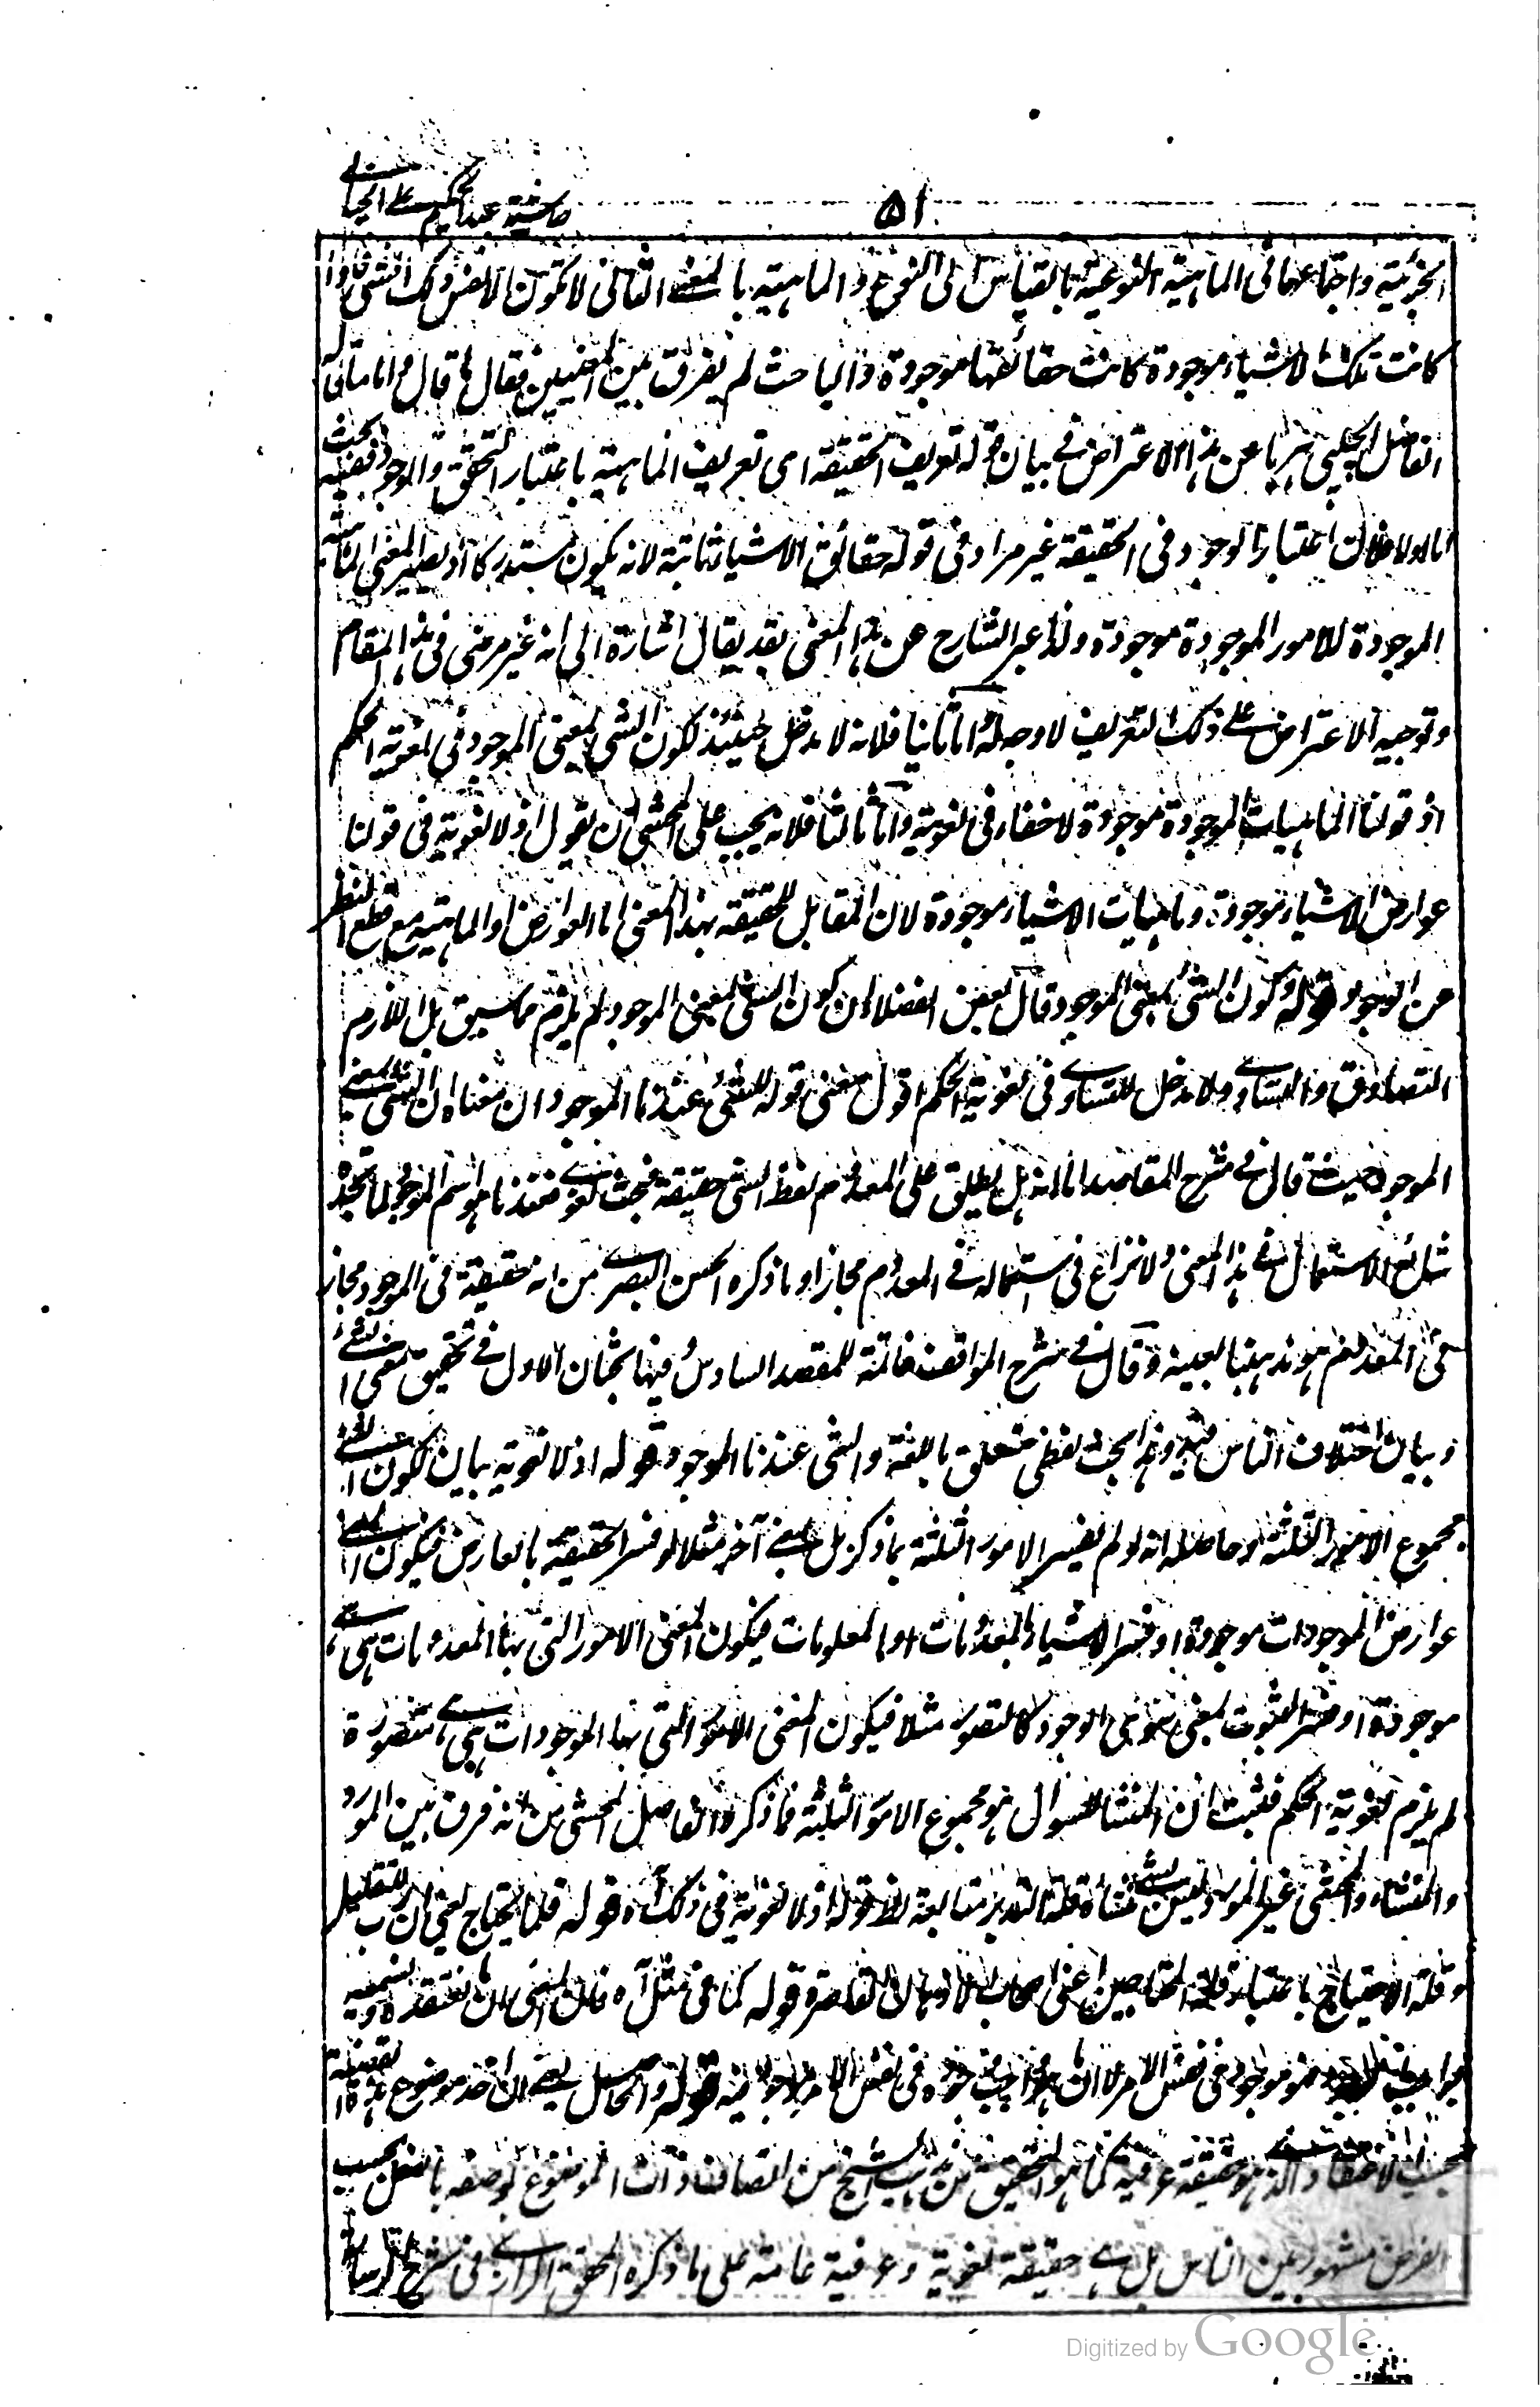 حاشية عبد الحكيم على الخيالي
٥١
الجزئية واجتماعهما في الماهية النوعية بالقياس الى النوع والماهية بالمعنى الثاني لا تكون الا نفس ذلك الشئ فاذا
كانت تلك الاشياء موجودة كانت حقائقها موجودة والباحث لم يفرق بين المعنيين فقال ما قال واما ما قاله
الفاضل الچلپي هربا عن هذا الاعتراض في بيان قوله تعريف الحقيقة اى تعريف الماهية باعتبار التحقق والوجود ففيه بحث
اما اولا فلان اعتبار الوجود في الحقيقة غير مراد في قوله حقائق الاشياء ثابتة لانه يكون مستدركا اذ يصير المعنى الماهية
الموجودة للامور الموجودة موجودة ولذا عبر الشارح عن هذا المعنى بقد يقال اشارة الى انه غير مرضى في هذا المقام
وتوجيه الاعتراض على ذلك التعريف لا وجه له واما ثانيا فلانه لا مدخل حينئذ لكون الشئ بمعنى الموجود في لغوية الحكم
اذ قولنا الماهيات الموجودة موجودة لا خفاء في لغويته واما ثالثا فلانه يجب على المحشى ان يقول اذ لا لغوية في قولنا
عوارض الاشياء موجودة وماهيات الاشياء موجودة لان المقابل للحقيقة بهذا المعنى اما العوارض او الماهية مع قطع النظر
عن الوجود قوله وكون الشئ بمعنى الموجود قال بعض الفضلاء ان كون الشئ بمعنى الموجود لم يلزم مما سبق بل اللازم
التصادق والتساوي ولا مدخل للتساوي في لغوية الحكم اقول معنى قوله الشئ عندنا الموجود ان معناه ان الشئ بمعنى
الموجود حيث قال في شرح المقاصد اما انه هل يطلق على المعدوم لفظ الشئ حقيقة فبحث لغوي فعندنا هو اسم الموجود لما نجده
شائع الاستعمال في هذا المعنى ولا نزاع في استعماله في المعدوم مجازا وما ذكره الحسن البصري من انه حقيقة في الموجود مجاز
في المعدوم هو مذهبنا بعينه وقال في شرح المواقف خاتمة للمقصد السادس وفيها بحثان الاول في تحقيق معنى الشئ
وبيان اختلاف الناس فيه وهذا بحث لفظي متعلق باللغة والشئ عندنا الموجود قوله اذ لا لغوية بيان لكون المنشأ
مجموع الامور الثلثة وحاصله انه لو لم يفسر الامور الثلثة بما ذكر بل بمعنى آخر مثلا لو فسر الحقيقة بالعارض فيكون المعنى
عوارض الموجودات موجودة او فسر الاشياء بالمعدومات او المعلومات فيكون المعنى الامور التي بها المعدومات هي هي
موجودة او فسر الثبوت بمعنى سوى الوجود كالتصور مثلا فيكون المعنى الامور التي بها الموجودات هي هي متصورة
لم يلزم لغوية الحكم فثبت ان المنشأ للسوال هو مجموع الامور الثلثة فما ذكره الفاضل المحشى من انه فرق بين المورد
والمنشاء والمحشى غير المورد وليس بشئ منشأه قلة التدبر متابعة لفظ قوله اذ لا لغوية في ذلك آه قوله فلما يحتاج يعنى ان رب للتقليل
وقلة الاحتياج باعتبار قلة المحتاجين اعنى اصحاب الاذهان القاصرة قوله كما في مثل آه فان المعنى ان ما نعتقده ونسميه
واجب الوجود هو موجود في نفس الامر لا ان ما هو واجب وجوده في نفس الامر موجود فيه قوله والحاصل يعنى ان اخذ موضوع هذه القضية
بحسب الاعتقاد والذهن حقيقة عرفية كما هو التحقيق من مذهب الشيخ من اتصاف ذات الموضوع بوصفه بالفعل بحسب
الفرض مشهور بين الناس بل هي حقيقة لغوية وعرفية عامة على ما ذكره المحقق الرازي في شرح الرسالة
Digitized by Google